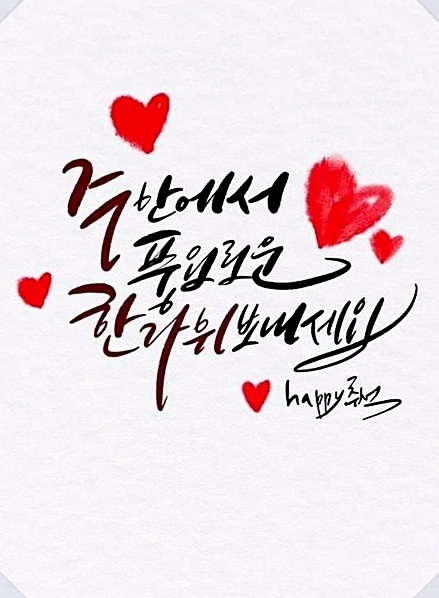 주 안에서
풍요로운
한가위 보내세요
happy 추석